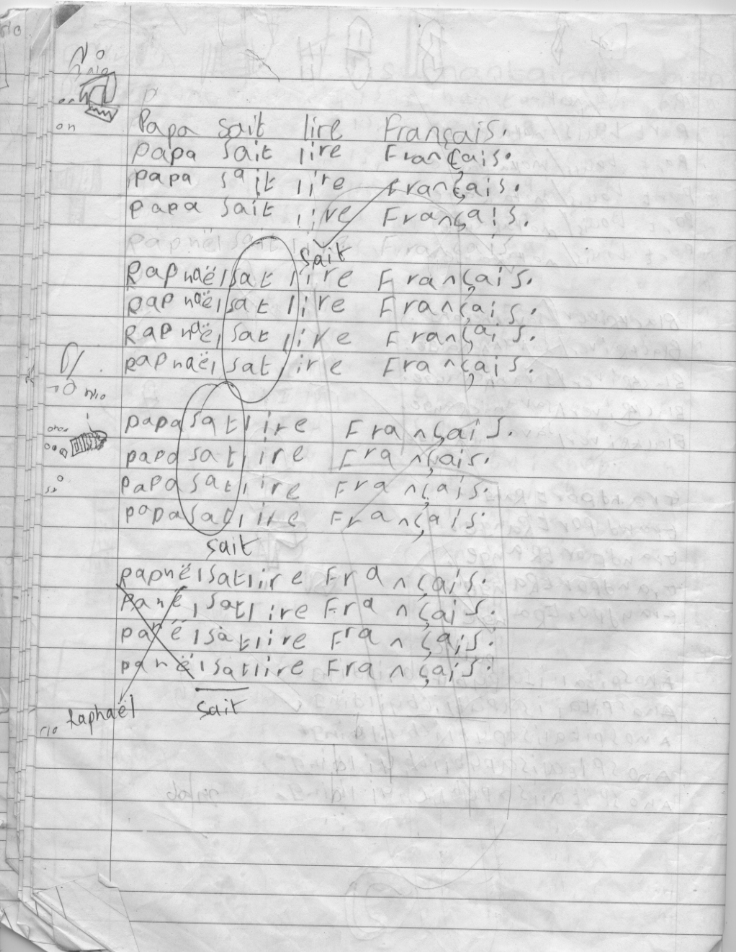 Papa sait lire Français.
papa sait lire Français.
papa sait lire Français.
papa sait lire Français.
sait
Raphaël sat lire Français.
Raphaël sat lire Français.
Raphaël sat lire Français.
Raphaël sat lire Français.
papa sat lire Français.
papa sat lire Français.
papa sat lire Français.
papa sat lire Français.
sait
papnël sat lire Français.
panël sat lire Français.
panël sat lire Français.
panël sat lire Français.
Raphaël sait